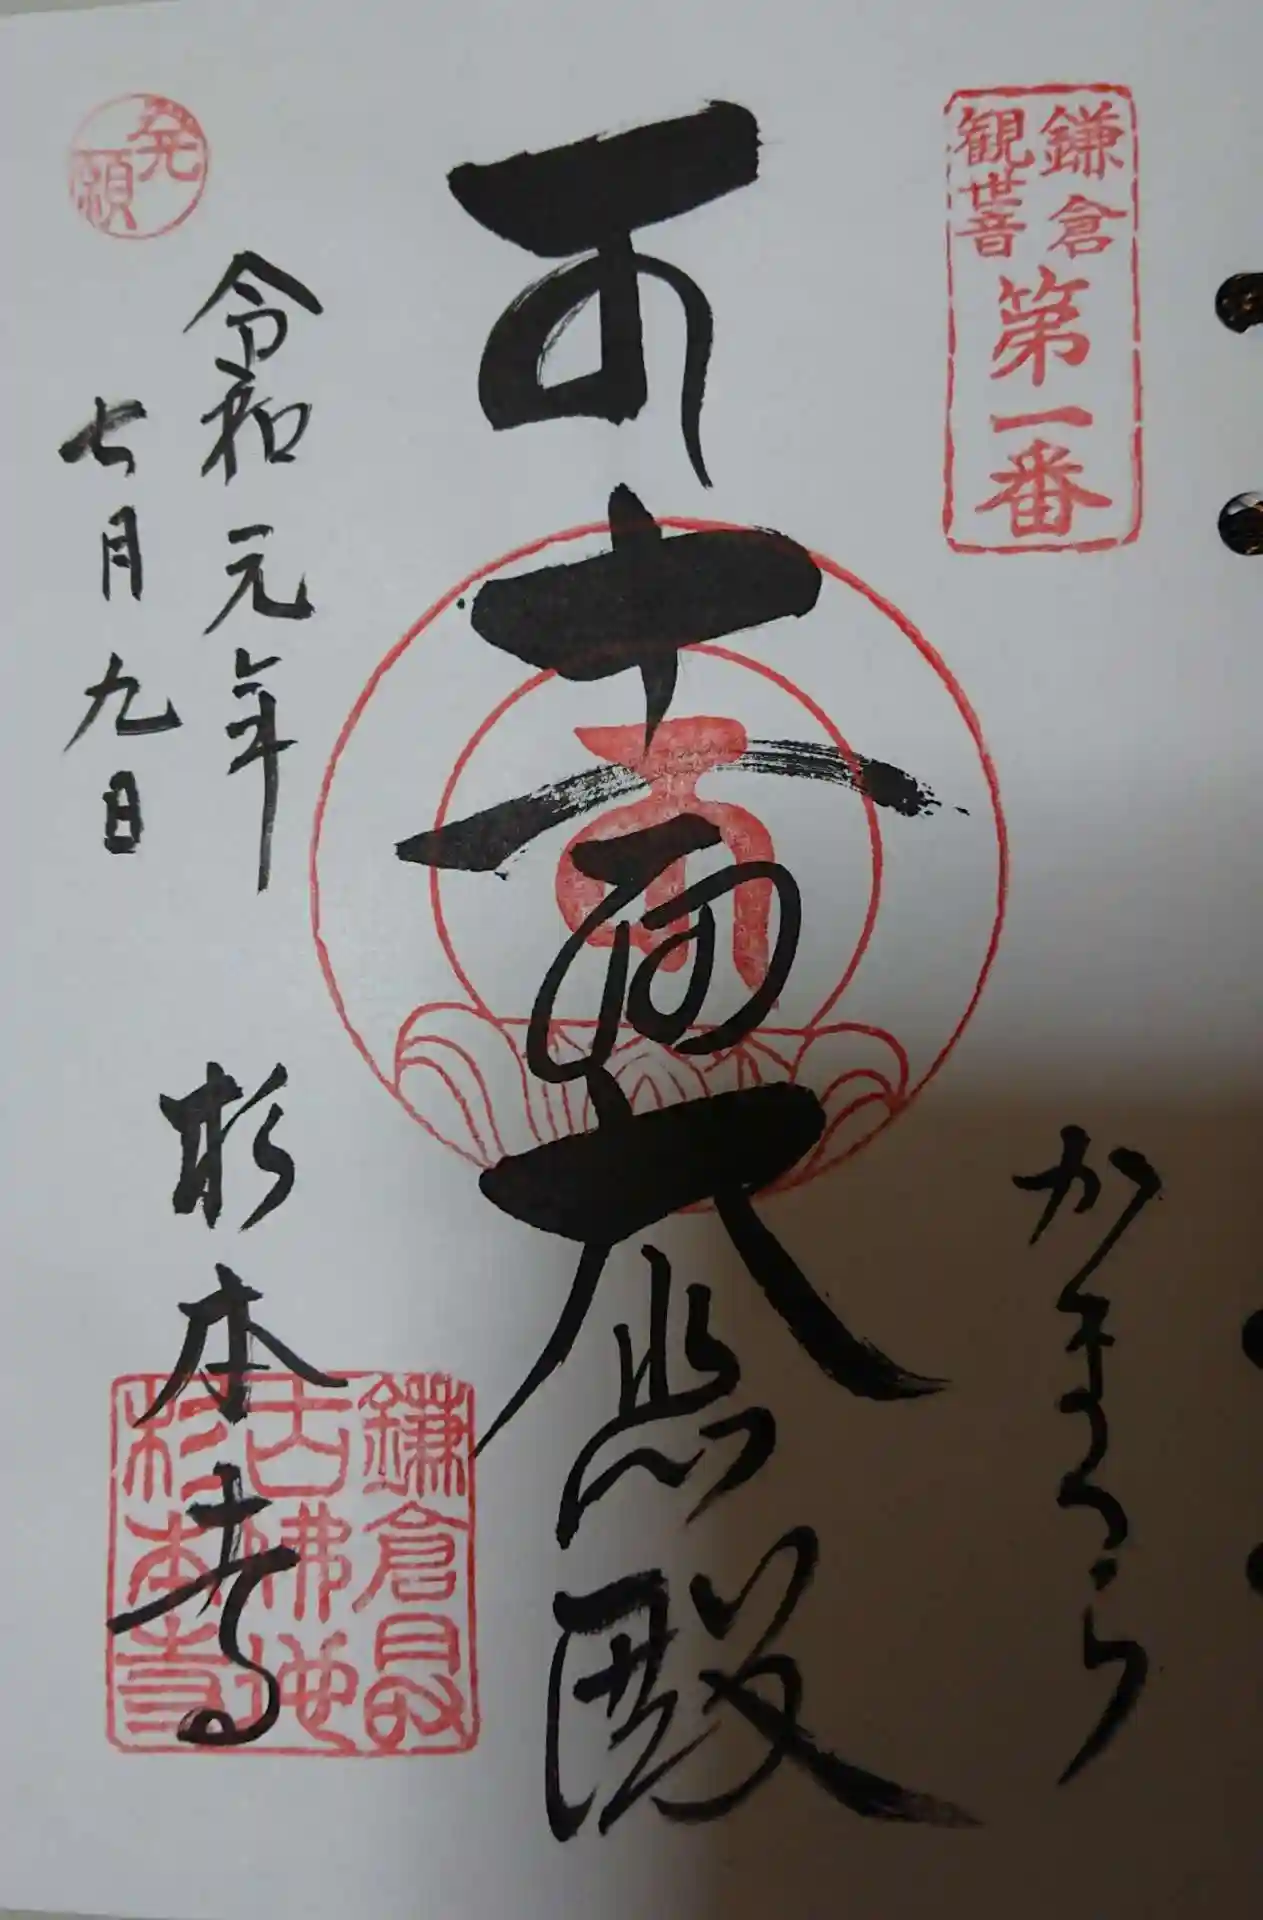 鎌倉
観世音
第一番
かまくら
十一面大悲殿
発願
令和元年
七月九日
杉本寺
鎌倉最
古佛地
杉本寺